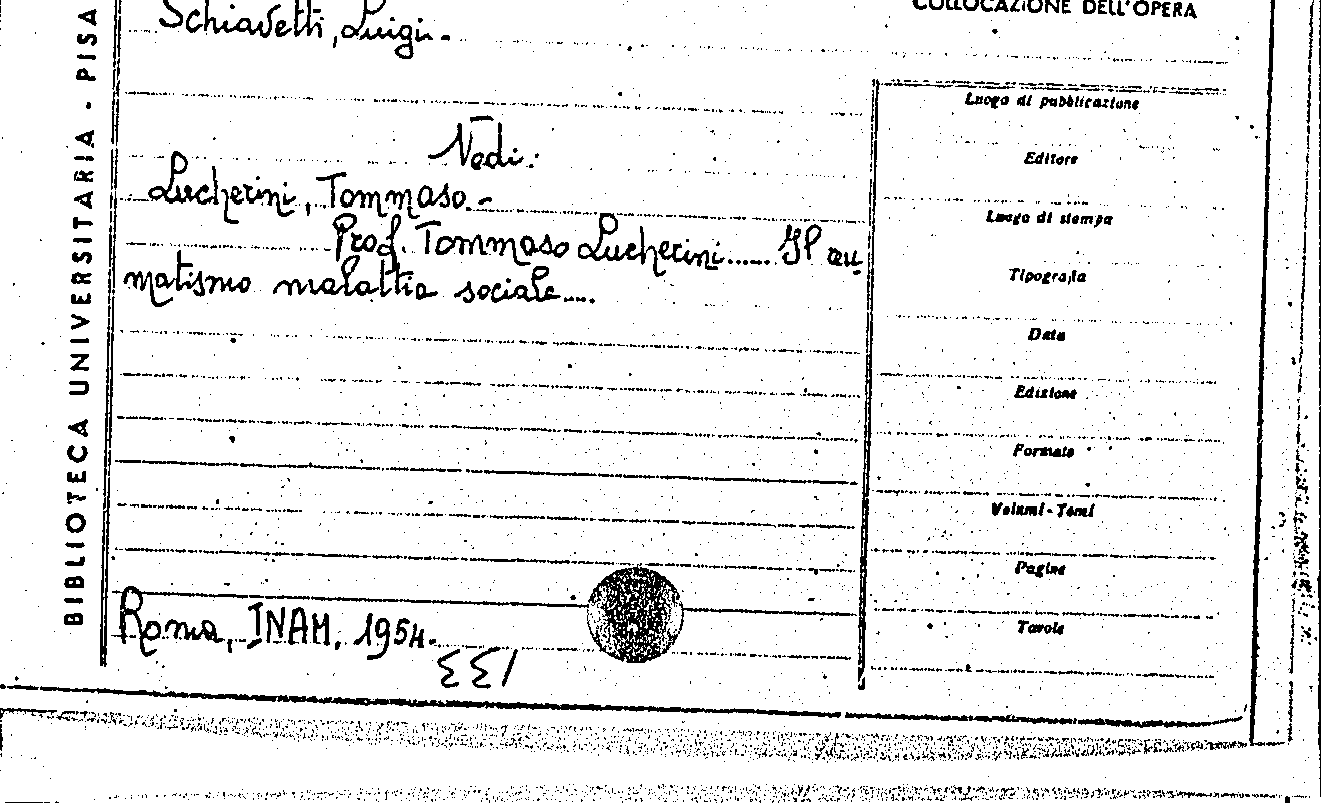 COLLOCAZIONE DELL'OPERA
BIBLIOTECA UNIVERSITARIA - PISA
Schiavetti, Luigi.-
Vedi:
Lucherini, Tommaso.-
Prof. Tommaso Lucherini...... Il
matismo malattia sociale....
Roma, INAM, 1954.
Luogo di pubblicazione
Editore
Luogo di stampa
Tipografia
Data
Edizione
Formato
Volumi - Tomi
Pagine
Tavole